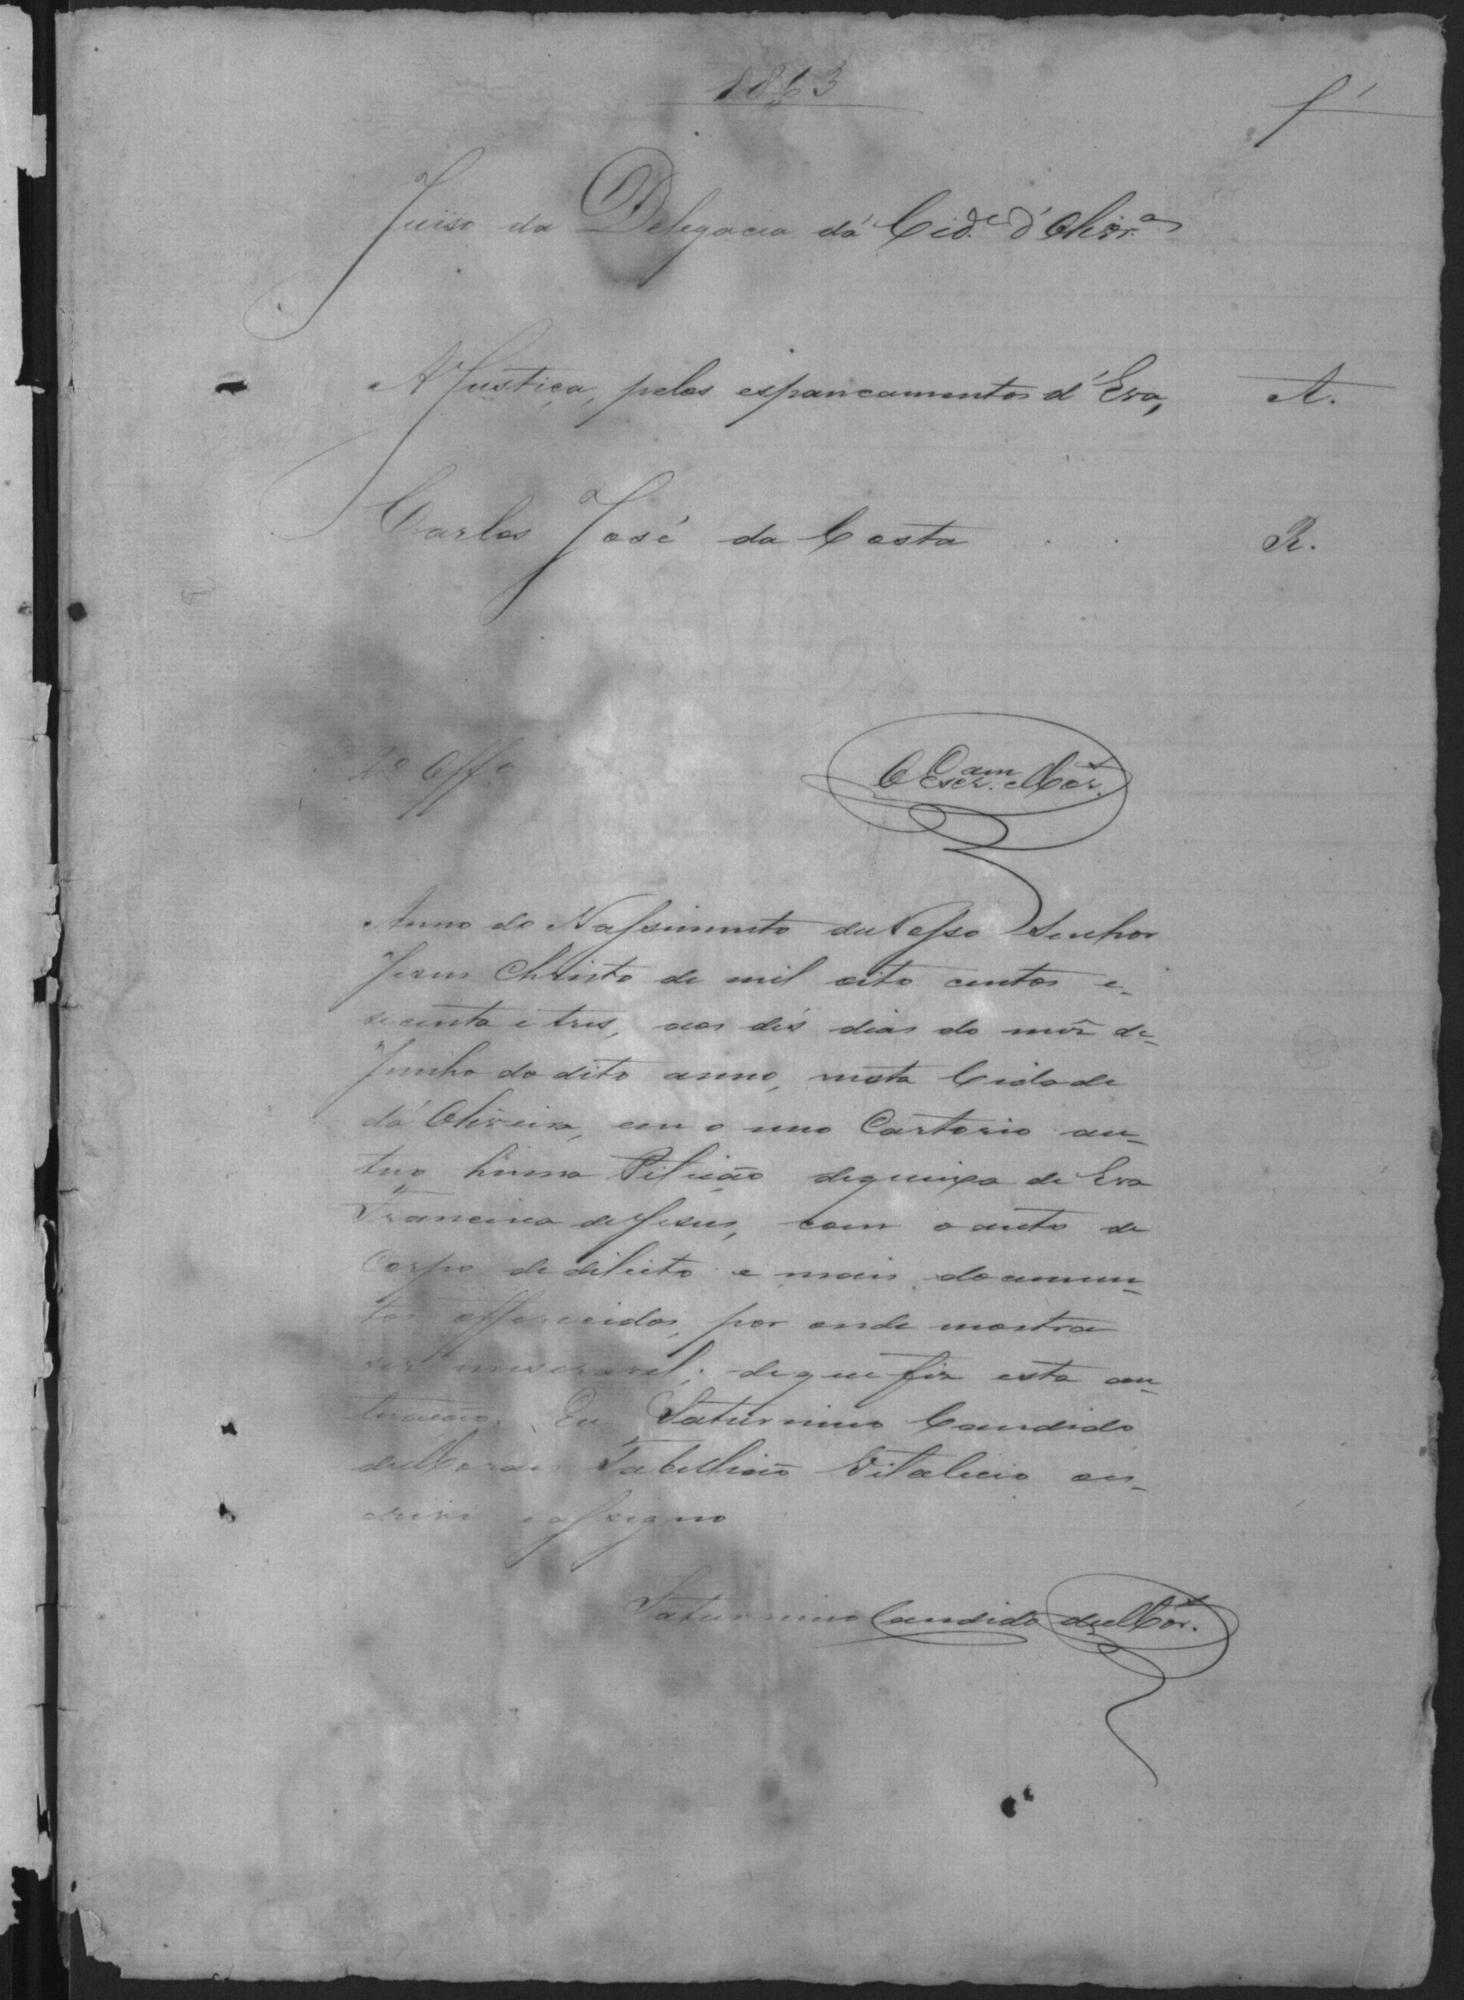 1863
f 1
Juiso da Delegacia dá Cid.e d'Olivr.a
A Justiça, pelos espancamentos d'Eva, A.
Carlos José da Costa R.
2º Off.o
O Escr.am Mor.s
Anno do Nassimento de Nosso Senhor
Jesus Christo de mil oito centos e
secenta e tres, aos dés dias do mês de
Junho do dito anno, nesta Cidade
dá Oliveira, em o meo Cartorio au-
tuo huma Petição de queixa de Eva
Francisca de Jesus, com o auto de
Corpo de delicto e mais documen-
tos offerecidos, por onde mostra
ser miseravel; de que fiz esta au-
tuação. Eu Saturnino Candido
de Moraes Tabellião Vitalicio es-
crevi e assigno
Saturnino Candido de Mor.s